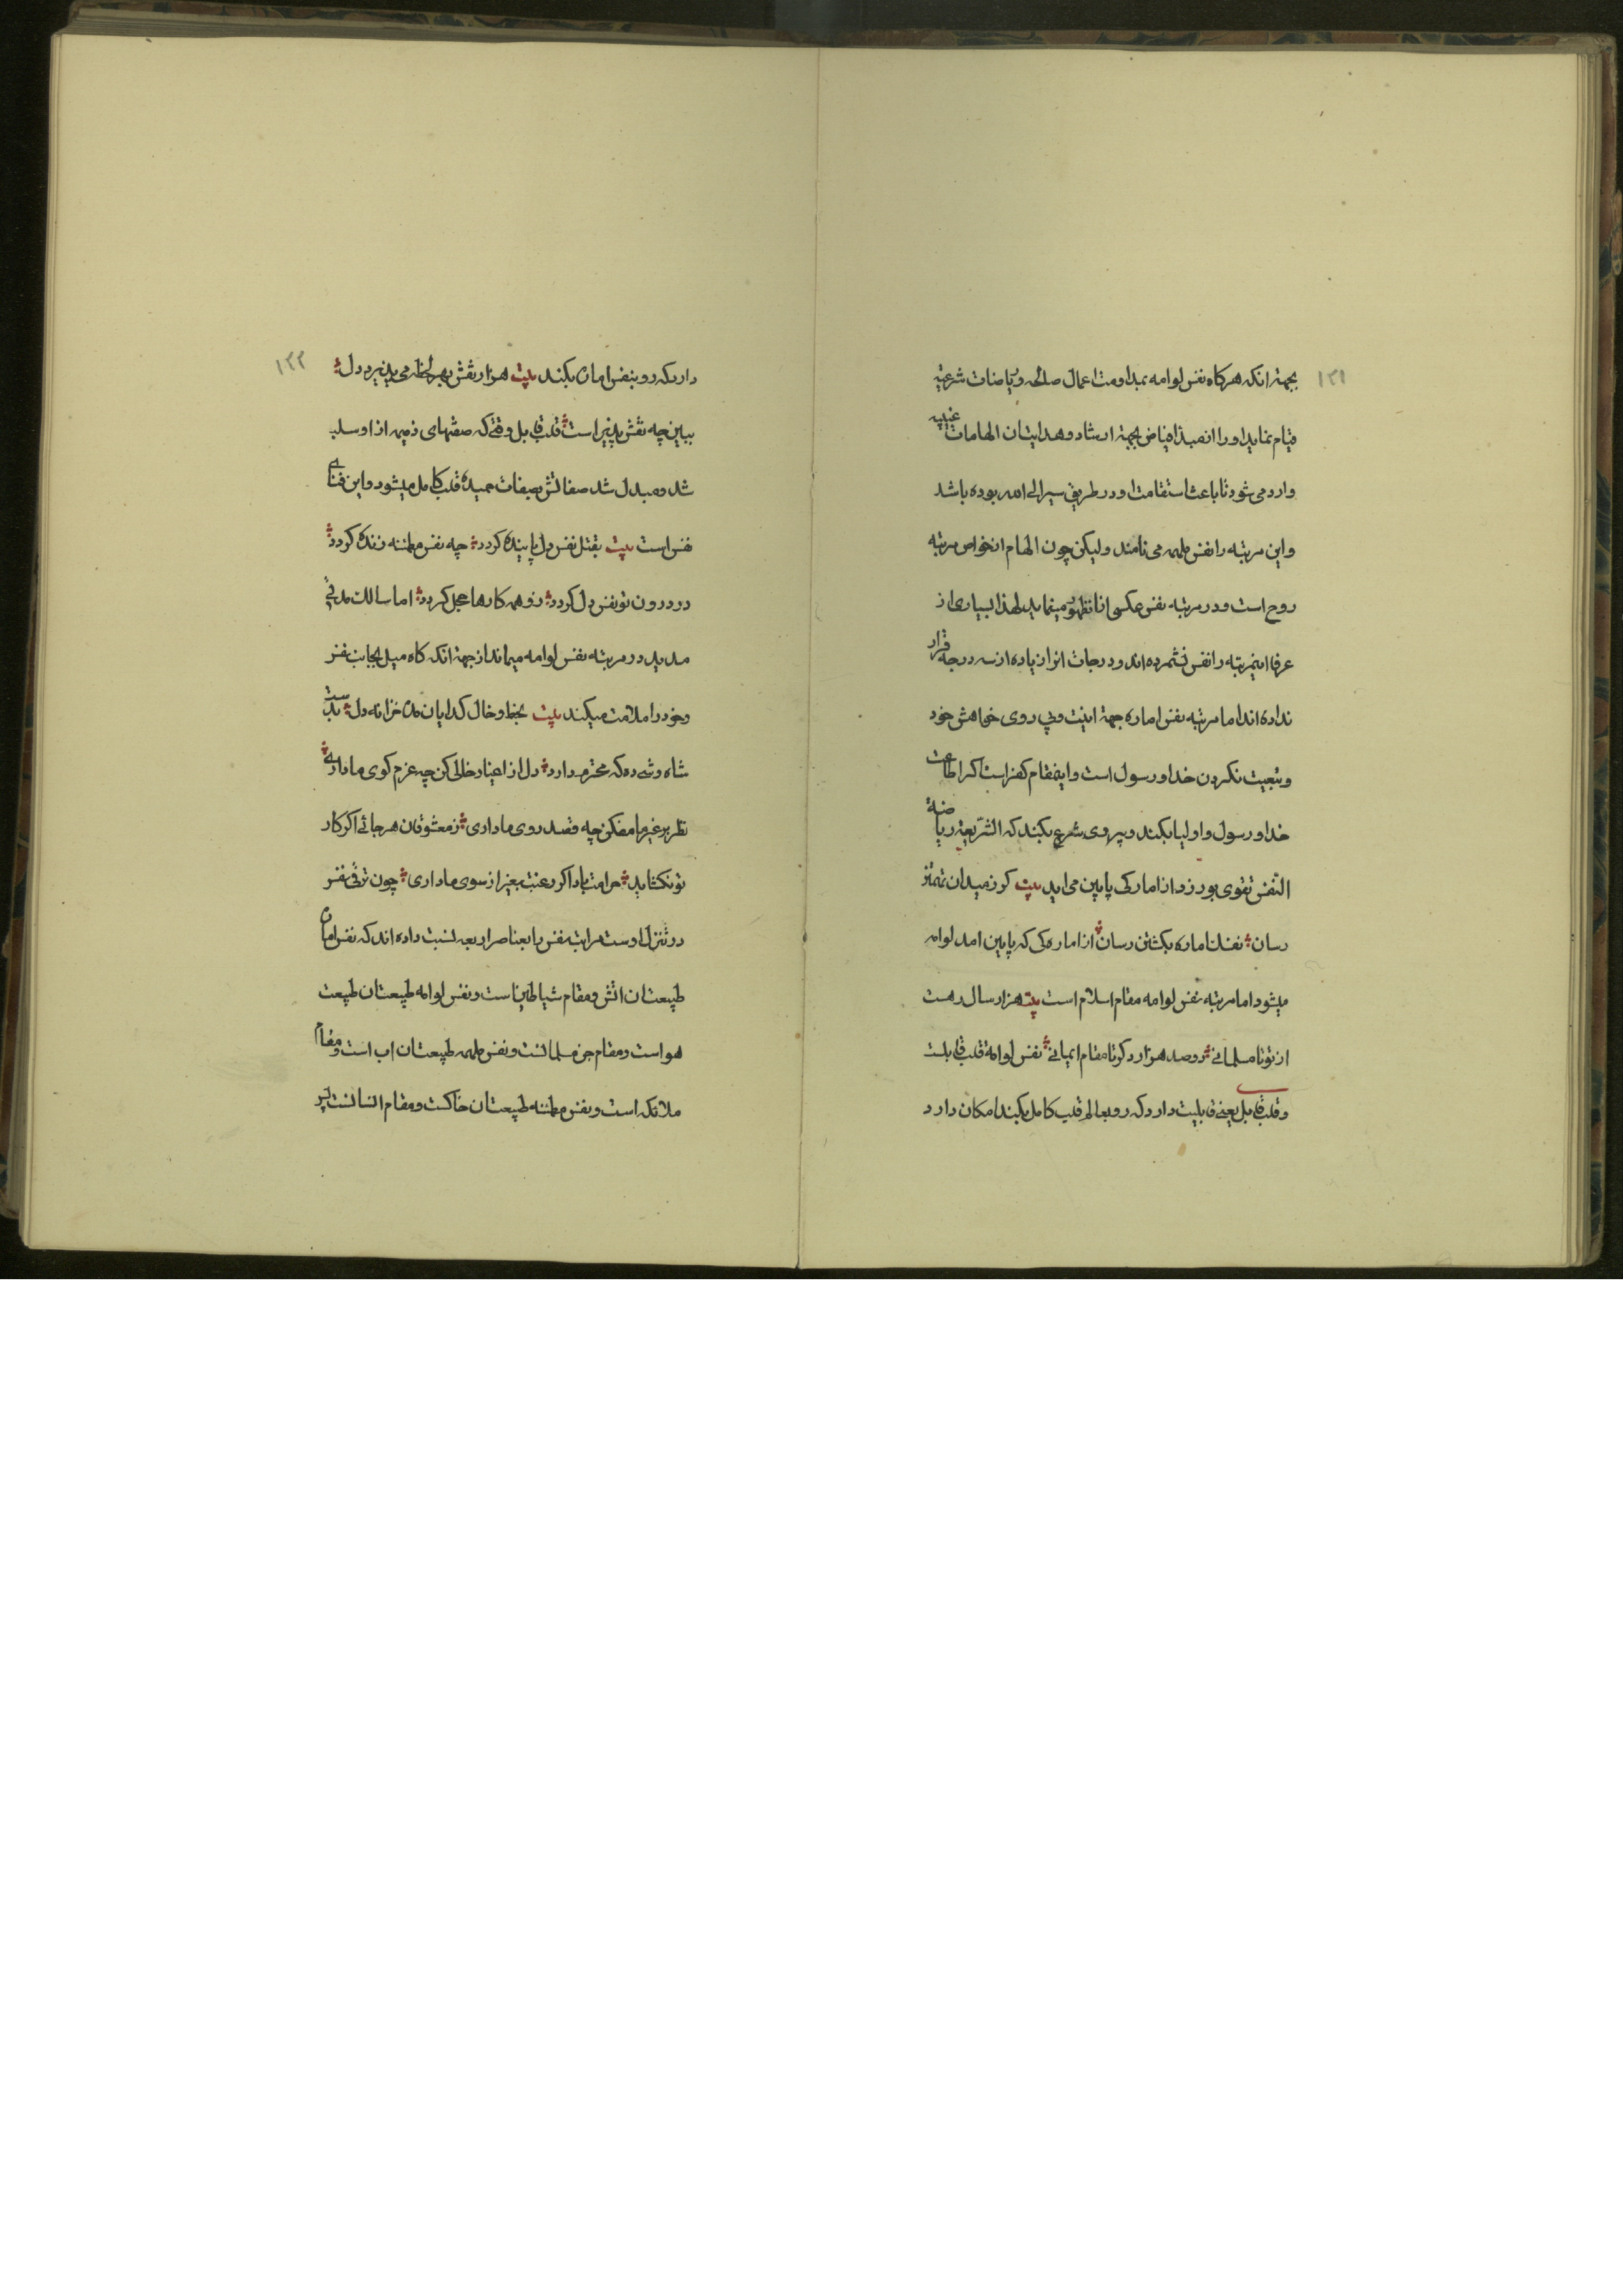 ۱۲۱
بجهة انکه هرکاه نفس لوامه بمداومت اعمال صالحه و ریاضات شرعیه
قیام نماید او را از مبداء فیاض بجهة ارشاد و هدایتان الهامات غیبیه
وارد می شود تا باعث استقامت او در طریق سیر الی الله بوده باشد
و این مرتبه را نفس ملهمه می نامند و لیکن چون الهام از خواص مرتبه
روح است و در مرتبه نفس عکسی از ان ظهور مینماید لهذا بسیاری از
عرفا اینمرتبه را نفس نشمرده اند و درجات انرا زیاده از سه درجه قرار
نداده اند اما مرتبه نفس اماره جهة اینیت و پی روی خواهش خود
و تبعیت نکردن خدا و رسول است و اینمقام کفر است اکر اطاعت
خدا و رسول و اولیا بکند و پیروی شرع بکند که الشریعة ریاضة
النفس تقوی بورزد از امارکی پایین می اید بیت کرز میدان تمتز
رسان نفس اماره بکشتن رسان از اماره کی که پایین امد لوامه
میشود اما مرتبه نفس لوامه مقام اسلام است بیت هزار سال رهست
از تو تا مسلمانی دو صد هزار دکر تا مقام ایمانی نفس لوامة قلب قابلست
و قلب قابل یعنی قابلیت دارد که رو بعالم قلب کامل بکند امکان دارد
۱۲۲
دارد که رو بنفس اماره بکند بیت هزار نقش بهر لحظه می پذیرد دل
ببین چه نقش پذیر است قلب قابل وقتی که صفتهای ذمیمه از او سلب
شد و مبدل شد صفاتش بصفات حمیده قلب کامل میشود و این فنای
نفس است بیت بقتل نفس دل پاینده کردد چه نفس مطمئنه زنده کردد
در درون تو نفس دل کردد زو همه کارها بحل کردد اما سالک مدتی
مدید در مرتبه نفس لوامه میماند از جهة انکه کاه میل بجانب نفس
و خود را ملامت میکند بیت بخط و خال کدایان مده خزانه دل بدست
شاه وشی ده که محترم دارد دل از اغیار خالی کن چه عزم کوی ما داری
نظر بر غیر ما مفکن چه قصد روی ما داری ز معشوقان هر جائی اکر کار
تو نکشاید حرامت باد اکر رغبت بغیر از سوی ما داری چون ترقی نفس
در تنزل اوست مراتب نفس را بعناصر اربعه نسبت داده اند که نفس اماره
طبیعتان اتش و مقام شیاطین است و نفس لوامه طبیعتان طبیعت
هواست و مقام جن مسلمانست و نفس ملهمه طبیعتان اب است و مقام
ملائکه است و نفس مطمئنه طبیعتان خاکست و مقام انسانست پس